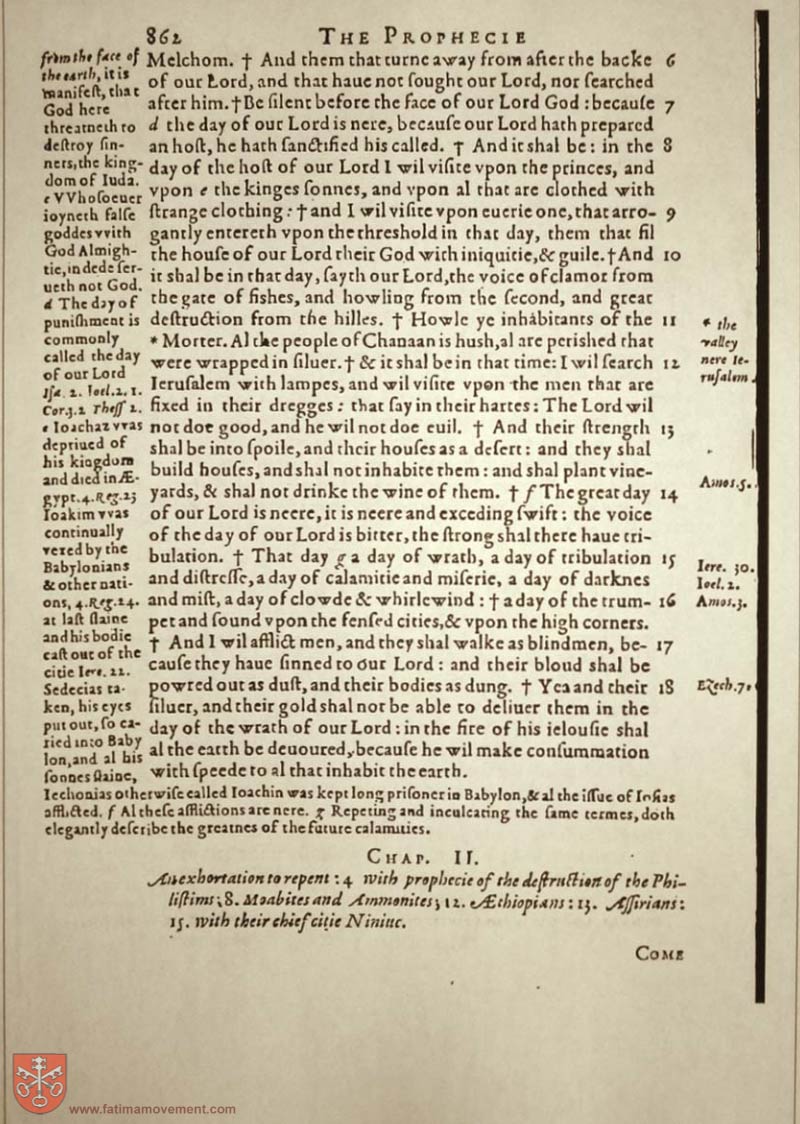 862 THE PROPHECIE
from the face of
the earth, it is
manifest, that
God here
threatneth to
destroy sin-
ners, the king-
dom of Iuda.
e VVhosoeuer
ioyneth false
goddes vvith
God Almigh-
tie, in dede ser-
ueth not God.
d The day of
punishment is
commonly
called the day
of our Lord
Isa. 2. Ioel. 2. 1.
Cor. 3. 2 Thess 2.
e Ioachaz vvas
depriued of
his kingdom
and died in Æ-
gypt. 4. Reg. 23
Ioakim vvas
continually
vexed by the
Babylonians
& other nati-
ons, 4. Reg. 24.
at last slaine
and his bodie
cast out of the
citie Iere. 22.
Sedecias ta-
ken, his eyes
put out, so ca-
ried into Baby
lon, and al his
sonnes slaine,
Melchom. † And them that turne away from after the backe 6
of our Lord, and that haue not ſought our Lord, nor ſearched
after him. † Be ſilent before the face of our Lord God : becauſe 7
d the day of our Lord is nere, becauſe our Lord hath prepared
an hoſt, he hath ſanctified his called. † And it shal be : in the 8
day of the hoſt of our Lord I wil viſite vpon the princes, and
vpon e the kinges ſonnes, and vpon al that are clothed with
ſtrange clothing : † and I wil viſite vpon euerie one, that arro- 9
gantly entereth vpon the threshold in that day, them that fil
the houſe of our Lord their God with iniquitie, & guile. † And 10
it shal be in that day, ſayth our Lord, the voice of clamor from
the gate of fishes, and howling from the ſecond, and great
deſtruction from the hilles. † Howle ye inhabitants of the 11
* Morter. Al the people of Chanaan is hush, al are perished that
were wrapped in ſiluer. † & it shal be in that time : I wil ſearch 12
Ieruſalem with lampes, and wil viſite vpon the men that are
fixed in their dregges : that ſay in their hartes : The Lord wil
not doe good, and he wil not doe euil. † And their ſtrength 13
shal be into ſpoile, and their houſes as a deſert : and they shal
build houſes, and shal not inhabite them : and shal plant vine-
yards, & shal not drinke the wine of them. † f The great day 14
of our Lord is neere, it is neere and exceding ſwift : the voice
of the day of our Lord is bitter, the ſtrong shal there haue tri-
bulation. † That day g a day of wrath, a day of tribulation 15
and diſtreſſe, a day of calamitie and miſerie, a day of darknes
and miſt, a day of clowde & whirlewind : † a day of the trum- 16
pet and ſound vpon the fenſed cities, & vpon the high corners.
† And I wil afflict men, and they shal walke as blindmen, be- 17
cauſe they haue ſinned to our Lord : and their bloud shal be
powred out as duſt, and their bodies as dung. † Yea and their 18
ſiluer, and their gold shal not be able to deliuer them in the
day of the wrath of our Lord : in the fire of his ielouſie shal
al the earth be deuoured, becauſe he wil make conſummation
with ſpeede to al that inhabit the earth.
* the
valley
nere Ie-
ruſalem.
Amos. 5.
Iere. 30.
Ioel. 2.
Amos. 5.
Ezech. 7.
Iechonias otherwiſe called Ioachin was kept long priſoner in Babylon, & al the iſſue of Ioſias
afflicted. f Al theſe afflictions are nere. g Repeting and inculcating the ſame termes, doth
elegantly deſcribe the greatnes of the future calamities.
CHAP. II.
An exhortation to repent : 4 with prophecie of the deſtruction of the Phi-
liſtims ; 8. Moabites and Ammonites ; 12. Æthiopians : 13. Aſſirians :
15. with their chief citie Niniue.
COME
www.fatimamovement.com